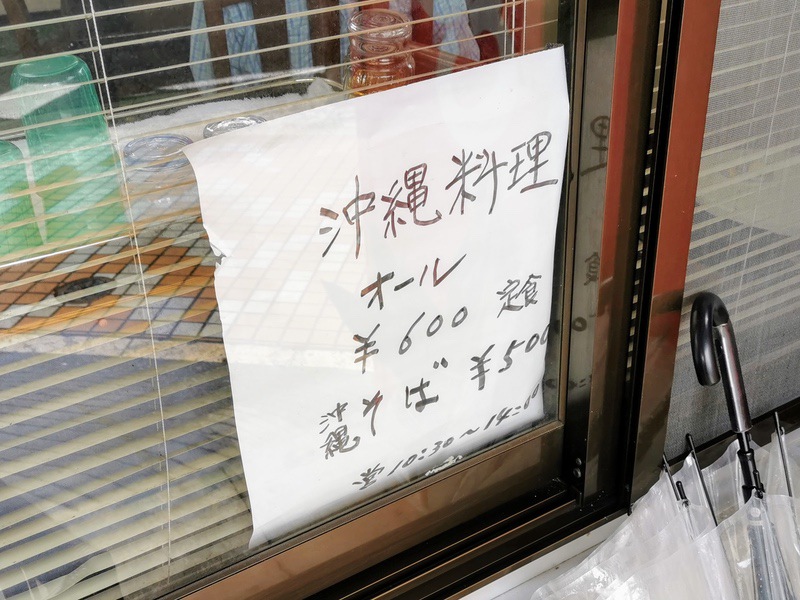 沖縄料理
オール
¥600 定食
沖縄そば ¥500
営10:30～14:00